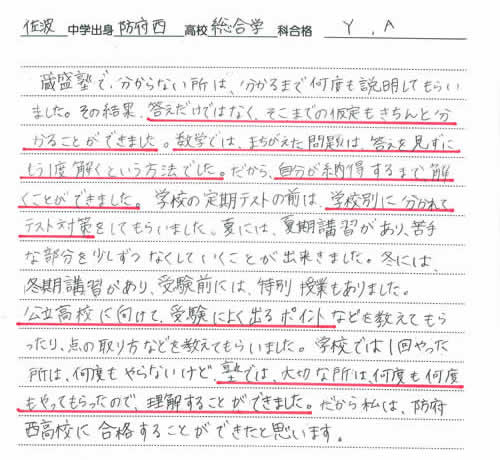 佐波 中学出身 防府西 高校 総合学 科合格 Y.A
蔵盛塾で、分からない所は、分かるまで何度も説明してもらい
ました。その結果、答えだけではなく、そこまでの仮定もきちんと分
かることができました。数学では、まちがえた問題は、答えを見ずに
もう1度解くという方法でした。だから、自分が納得するまで解
くことができました。学校の定期テストの前は、学校別に分かれて
テスト対策をしてもらいました。夏には、夏期講習があり、苦手
な部分を少しずつなくしていくことが出来きました。冬には、
冬期講習があり、受験前には、特別授業もありました。
公立高校に向けて、受験によく出るポイントなどを教えてもら
ったり、点の取り方などを教えてもらいました。学校では1回やった
所は、何度もやらないけど、塾では、大切な所は、何度も何度
もやってもらったので、理解することができました。だから私は、防府
西高校に合格することができたと思います。